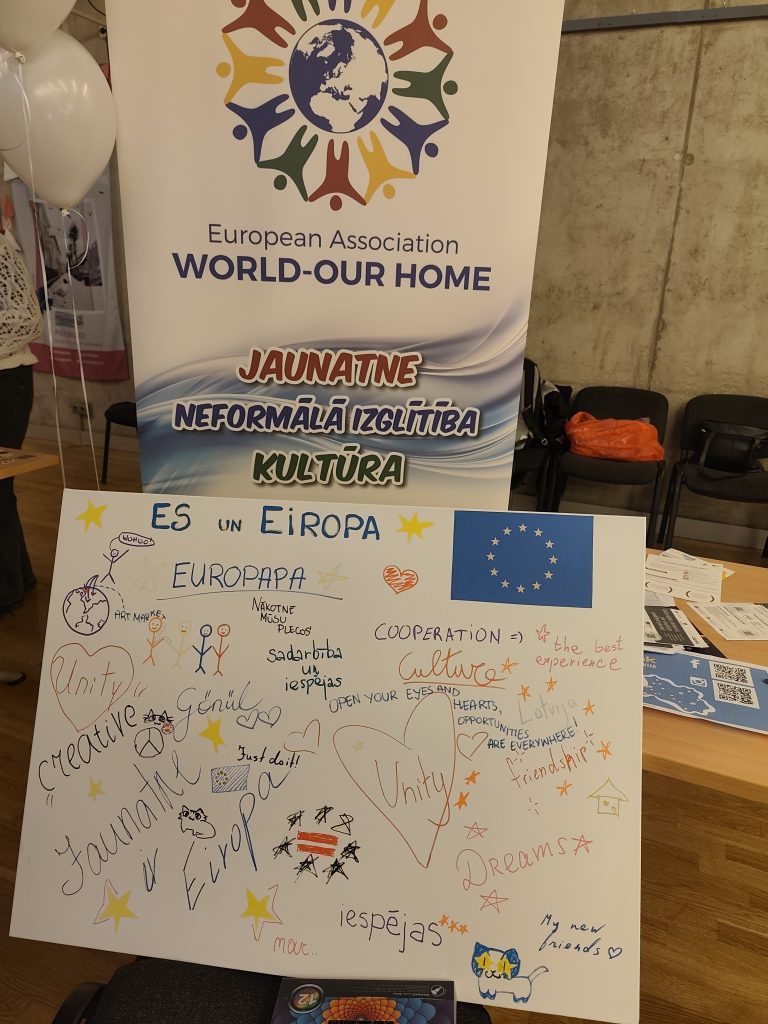 European Association
WORLD-OUR HOME
JAUNATNE
NEFORMĀLĀ IZGLĪTĪBA
KULTŪRA
ES UN EiROPA
WOHOO!
EUROPAPA
ART MARKE
NĀKOTNE
MŪSU
PLECOS
COOPERATION =>
the best
experience
Sadarbība
un
iespējas
Culture
Unity
Gönül
OPEN YOUR EYES AND
HEARTS,
OPPORTUNITIES
ARE EVERYWHERE!
Latvija
"creative"
Just do it!
friendship
Unity
Jaunatne
ir
Eiropa
Dreams
iespējas
My new
friends
12